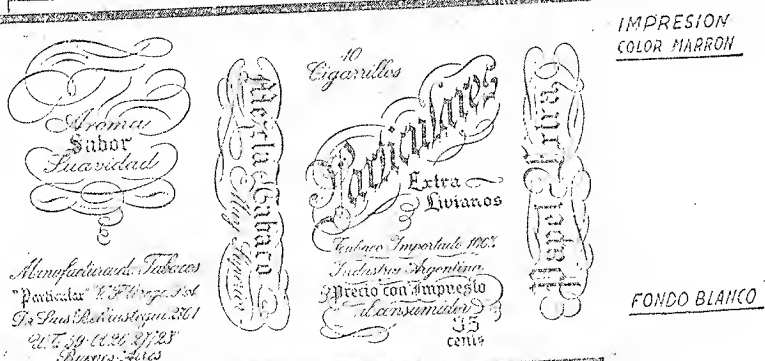 IMPRESION
COLOR MARRON
Aroma
Sabor
Suavidad
Manufactura de Tabacos
"Particular" V. F. Grego
Dr. Luis Beláustegui 2361
U. T. 59
Buenos Aires
Mezcla Tabaco
Muy Superior
10
Cigarrillos
Particulares
Extra
Livianos
Tabaco Importado 100%
Industria Argentina
Precio con Impuesto
al consumidor
35
cents
Papel Extra
FONDO BLANCO